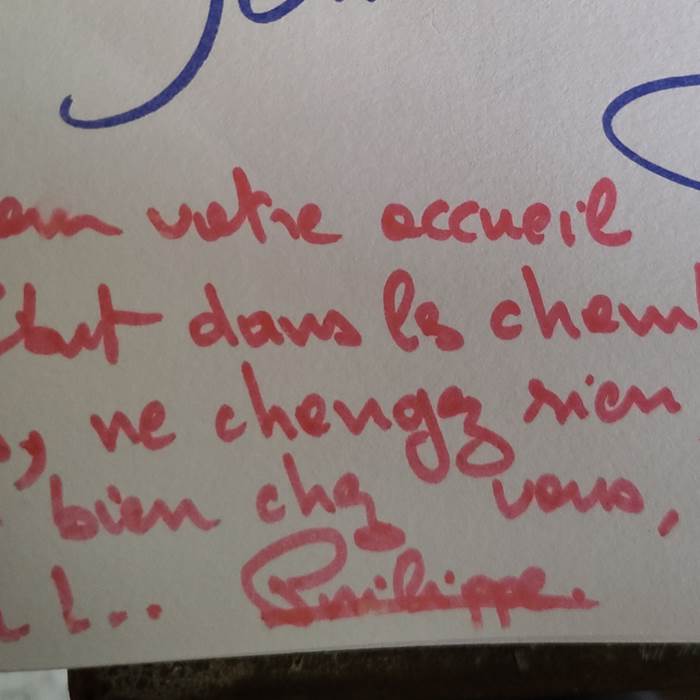 votre accueil
dans les
, ne changez rien
bien chez vous,
!.. Philippe.